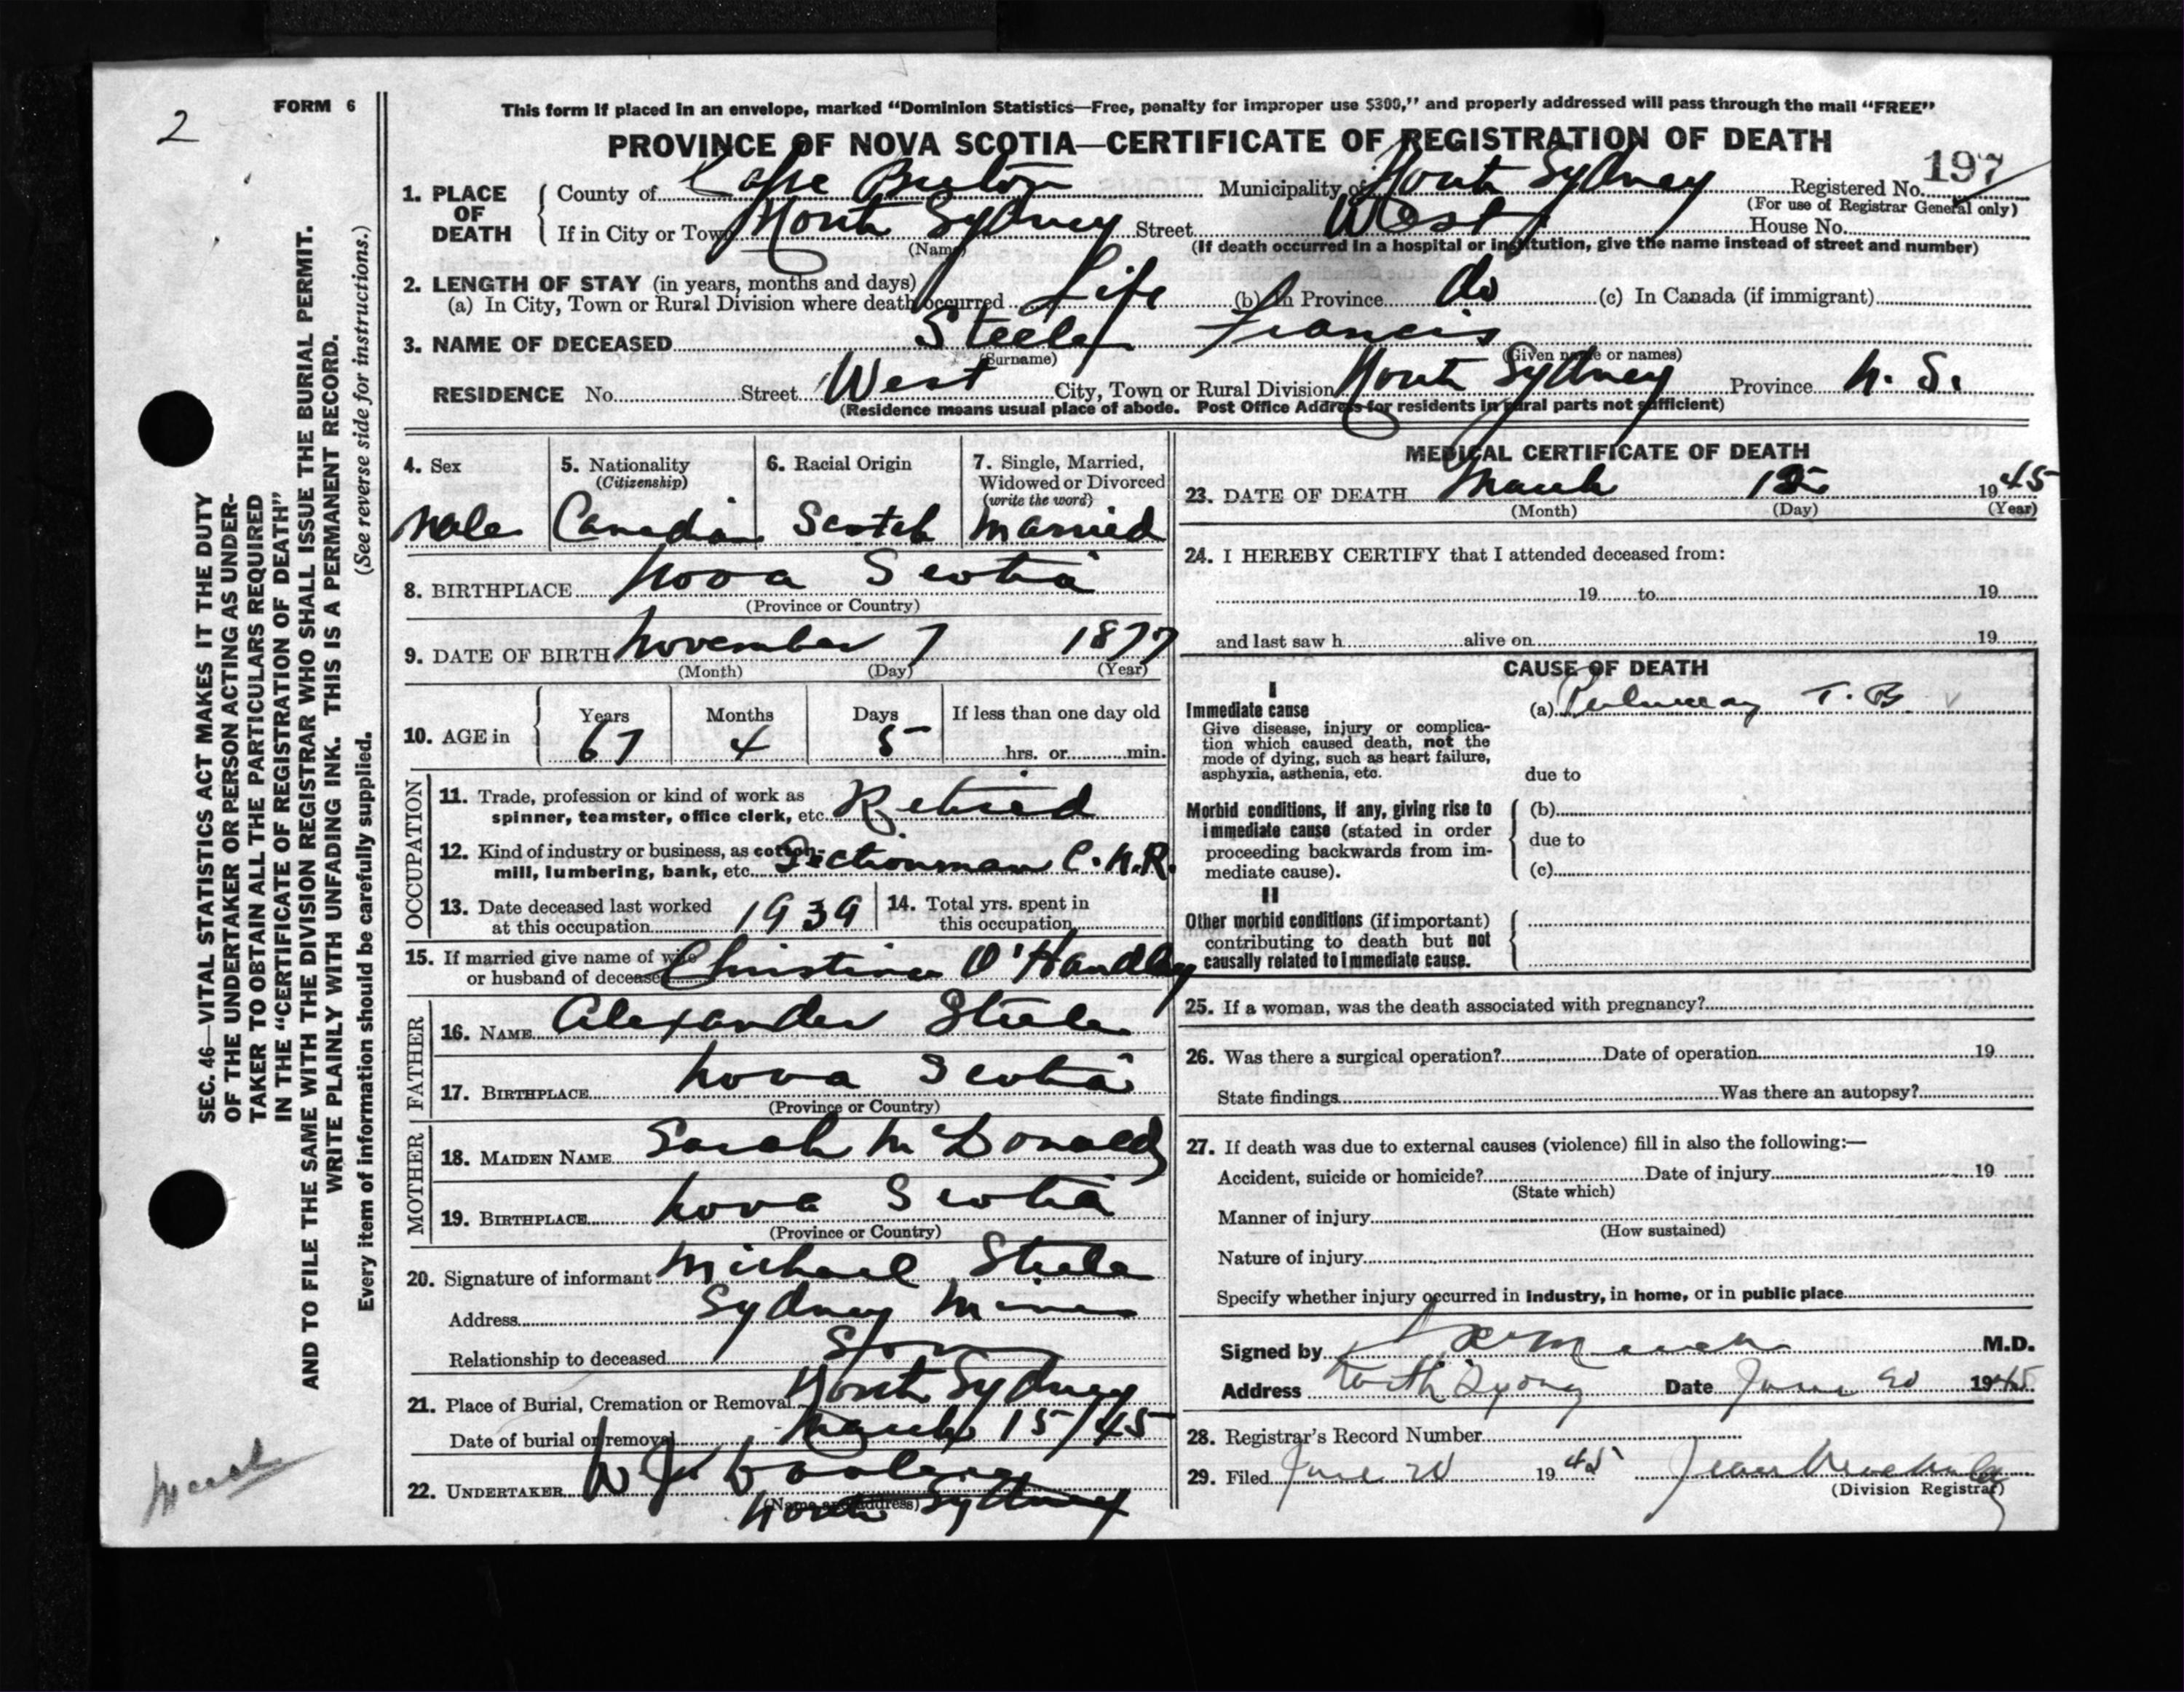 2
FORM 6
This form if placed in an envelope, marked “Dominion Statistics—Free, penalty for improper use $300,” and properly addressed will pass through the mail “FREE”
PROVINCE OF NOVA SCOTIA—CERTIFICATE OF REGISTRATION OF DEATH
197
1. PLACE OF DEATH County of Cape Breton Municipality of North Sydney Registered No.
(For use of Registrar General only)
If in City or Town North Sydney Street West House No.
(Name) (If death occurred in a hospital or institution, give the name instead of street and number)
2. LENGTH OF STAY (in years, months and days)
(a) In City, Town or Rural Division where death occurred Life (b) In Province do (c) In Canada (if immigrant)
3. NAME OF DECEASED Steele Francis
(Surname) (Given name or names)
RESIDENCE No. Street West City, Town or Rural Division North Sydney Province N. S.
(Residence means usual place of abode. Post Office Address for residents in rural parts not sufficient)
4. Sex 5. Nationality 6. Racial Origin 7. Single, Married,
(Citizenship) Widowed or Divorced
(write the word)
Male Canadian Scotch Married
8. BIRTHPLACE Nova Scotia
(Province or Country)
9. DATE OF BIRTH November 7 1877
(Month) (Day) (Year)
10. AGE in Years Months Days If less than one day old
67 4 5 hrs. or min.
OCCUPATION
11. Trade, profession or kind of work as
spinner, teamster, office clerk, etc. Retired
12. Kind of industry or business, as cotton-
mill, lumbering, bank, etc. Sectionman C.N.R.
13. Date deceased last worked
at this occupation 1939
14. Total yrs. spent in
this occupation
15. If married give name of wife
or husband of deceased Christina O'Handley
FATHER
16. NAME Alexander Steele
17. BIRTHPLACE Nova Scotia
(Province or Country)
MOTHER
18. MAIDEN NAME Sarah McDonald
19. BIRTHPLACE Nova Scotia
(Province or Country)
20. Signature of informant Michael Steele
Address Sydney Mines
Relationship to deceased Son
21. Place of Burial, Cremation or Removal North Sydney
Date of burial or removal March 15/45
22. UNDERTAKER W J
(Name and address)
North Sydney
MEDICAL CERTIFICATE OF DEATH
23. DATE OF DEATH March 1945
(Month) (Day) (Year)
24. I HEREBY CERTIFY that I attended deceased from:
19 to 19
and last saw h alive on 19
CAUSE OF DEATH
I
Immediate cause (a) Pulmonary T.B.
Give disease, injury or complica-
tion which caused death, not the
mode of dying, such as heart failure,
asphyxia, asthenia, etc. due to
Morbid conditions, if any, giving rise to (b)
immediate cause (stated in order
proceeding backwards from im- due to
mediate cause). (c)
II
Other morbid conditions (if important)
contributing to death but not
causally related to immediate cause.
25. If a woman, was the death associated with pregnancy?
26. Was there a surgical operation? Date of operation 19
State findings Was there an autopsy?
27. If death was due to external causes (violence) fill in also the following:—
Accident, suicide or homicide? Date of injury 19
(State which)
Manner of injury
(How sustained)
Nature of injury
Specify whether injury occurred in industry, in home, or in public place
Signed by M.D.
Address North Sydney Date June 20 1945
28. Registrar's Record Number
29. Filed June 20 1945 Jean
(Division Registrar)
SEC. 46—VITAL STATISTICS ACT MAKES IT THE DUTY
OF THE UNDERTAKER OR PERSON ACTING AS UNDER-
TAKER TO OBTAIN ALL THE PARTICULARS REQUIRED
IN THE “CERTIFICATE OF REGISTRATION OF DEATH”
AND TO FILE THE SAME WITH THE DIVISION REGISTRAR WHO SHALL ISSUE THE BURIAL PERMIT.
WRITE PLAINLY WITH UNFADING INK. THIS IS A PERMANENT RECORD.
Every item of information should be carefully supplied. (See reverse side for instructions.)
March